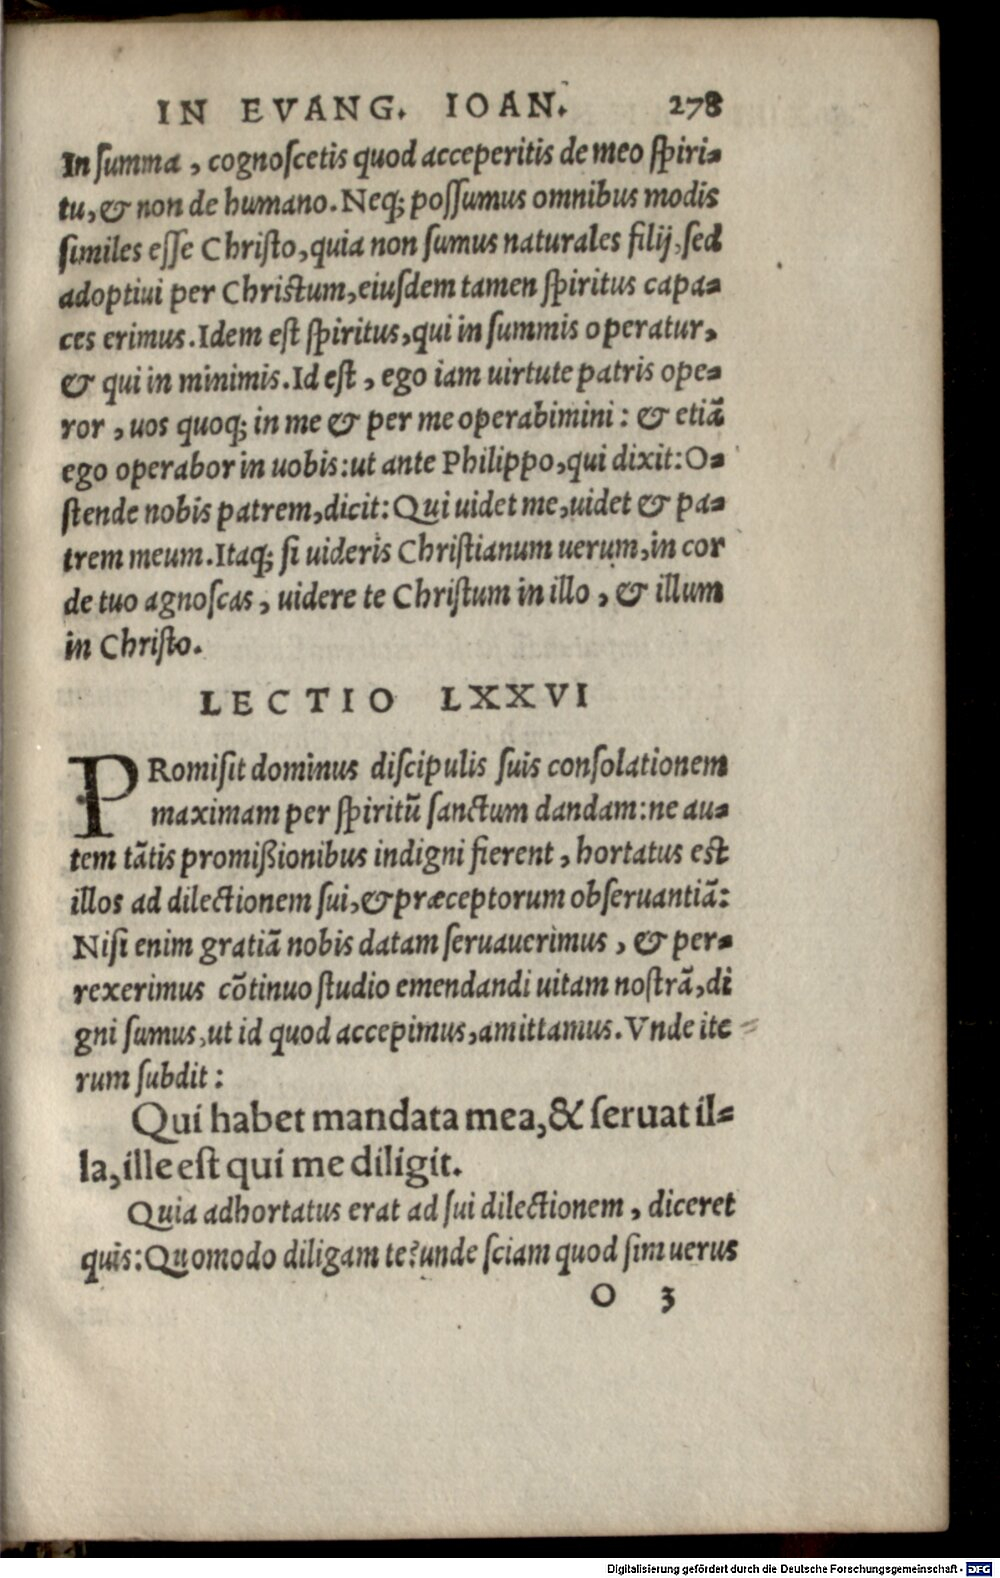 IN EVANG. IOAN. 278
In ſumma, cognoſcetis quod acceperitis de meo ſpiri-
tu, & non de humano. Neq; poſſumus omnibus modis
ſimiles eſſe Chriſto, quia non ſumus naturales filij, ſed
adoptiui per Chriſtum, eiuſdem tamen ſpiritus capa-
ces erimus. Idem eſt ſpiritus, qui in ſummis operatur,
& qui in minimis. Id eſt, ego iam uirtute patris ope-
ror, uos quoq; in me & per me operabimini: & etiã
ego operabor in uobis: ut ante Philippo, qui dixit: O-
ſtende nobis patrem, dicit: Qui uidet me, uidet & pa-
trem meum. Itaq; ſi uideris Chriſtianum uerum, in cor
de tuo agnoſcas, uidere te Chriſtum in illo, & illum
in Chriſto.
LECTIO LXXVI
PRomiſit dominus diſcipulis ſuis conſolationem
maximam per ſpiritũ ſanctum dandam: ne au-
tem tãtis promißionibus indigni fierent, hortatus eſt
illos ad dilectionem ſui, & præceptorum obſeruantiã:
Niſi enim gratiã nobis datam ſeruauerimus, & per-
rexerimus cõtinuo ſtudio emendandi uitam noſtrã, di
gni ſumus, ut id quod accepimus, amittamus. Vnde ite
rum ſubdit:
Qui habet mandata mea, & ſeruat il-
la, ille eſt qui me diligit.
Quia adhortatus erat ad ſui dilectionem, diceret
quis: Quomodo diligam te? unde ſciam quod ſim uerus
O 3
Digitalisierung gefördert durch die Deutsche Forschungsgemeinschaft - DFG